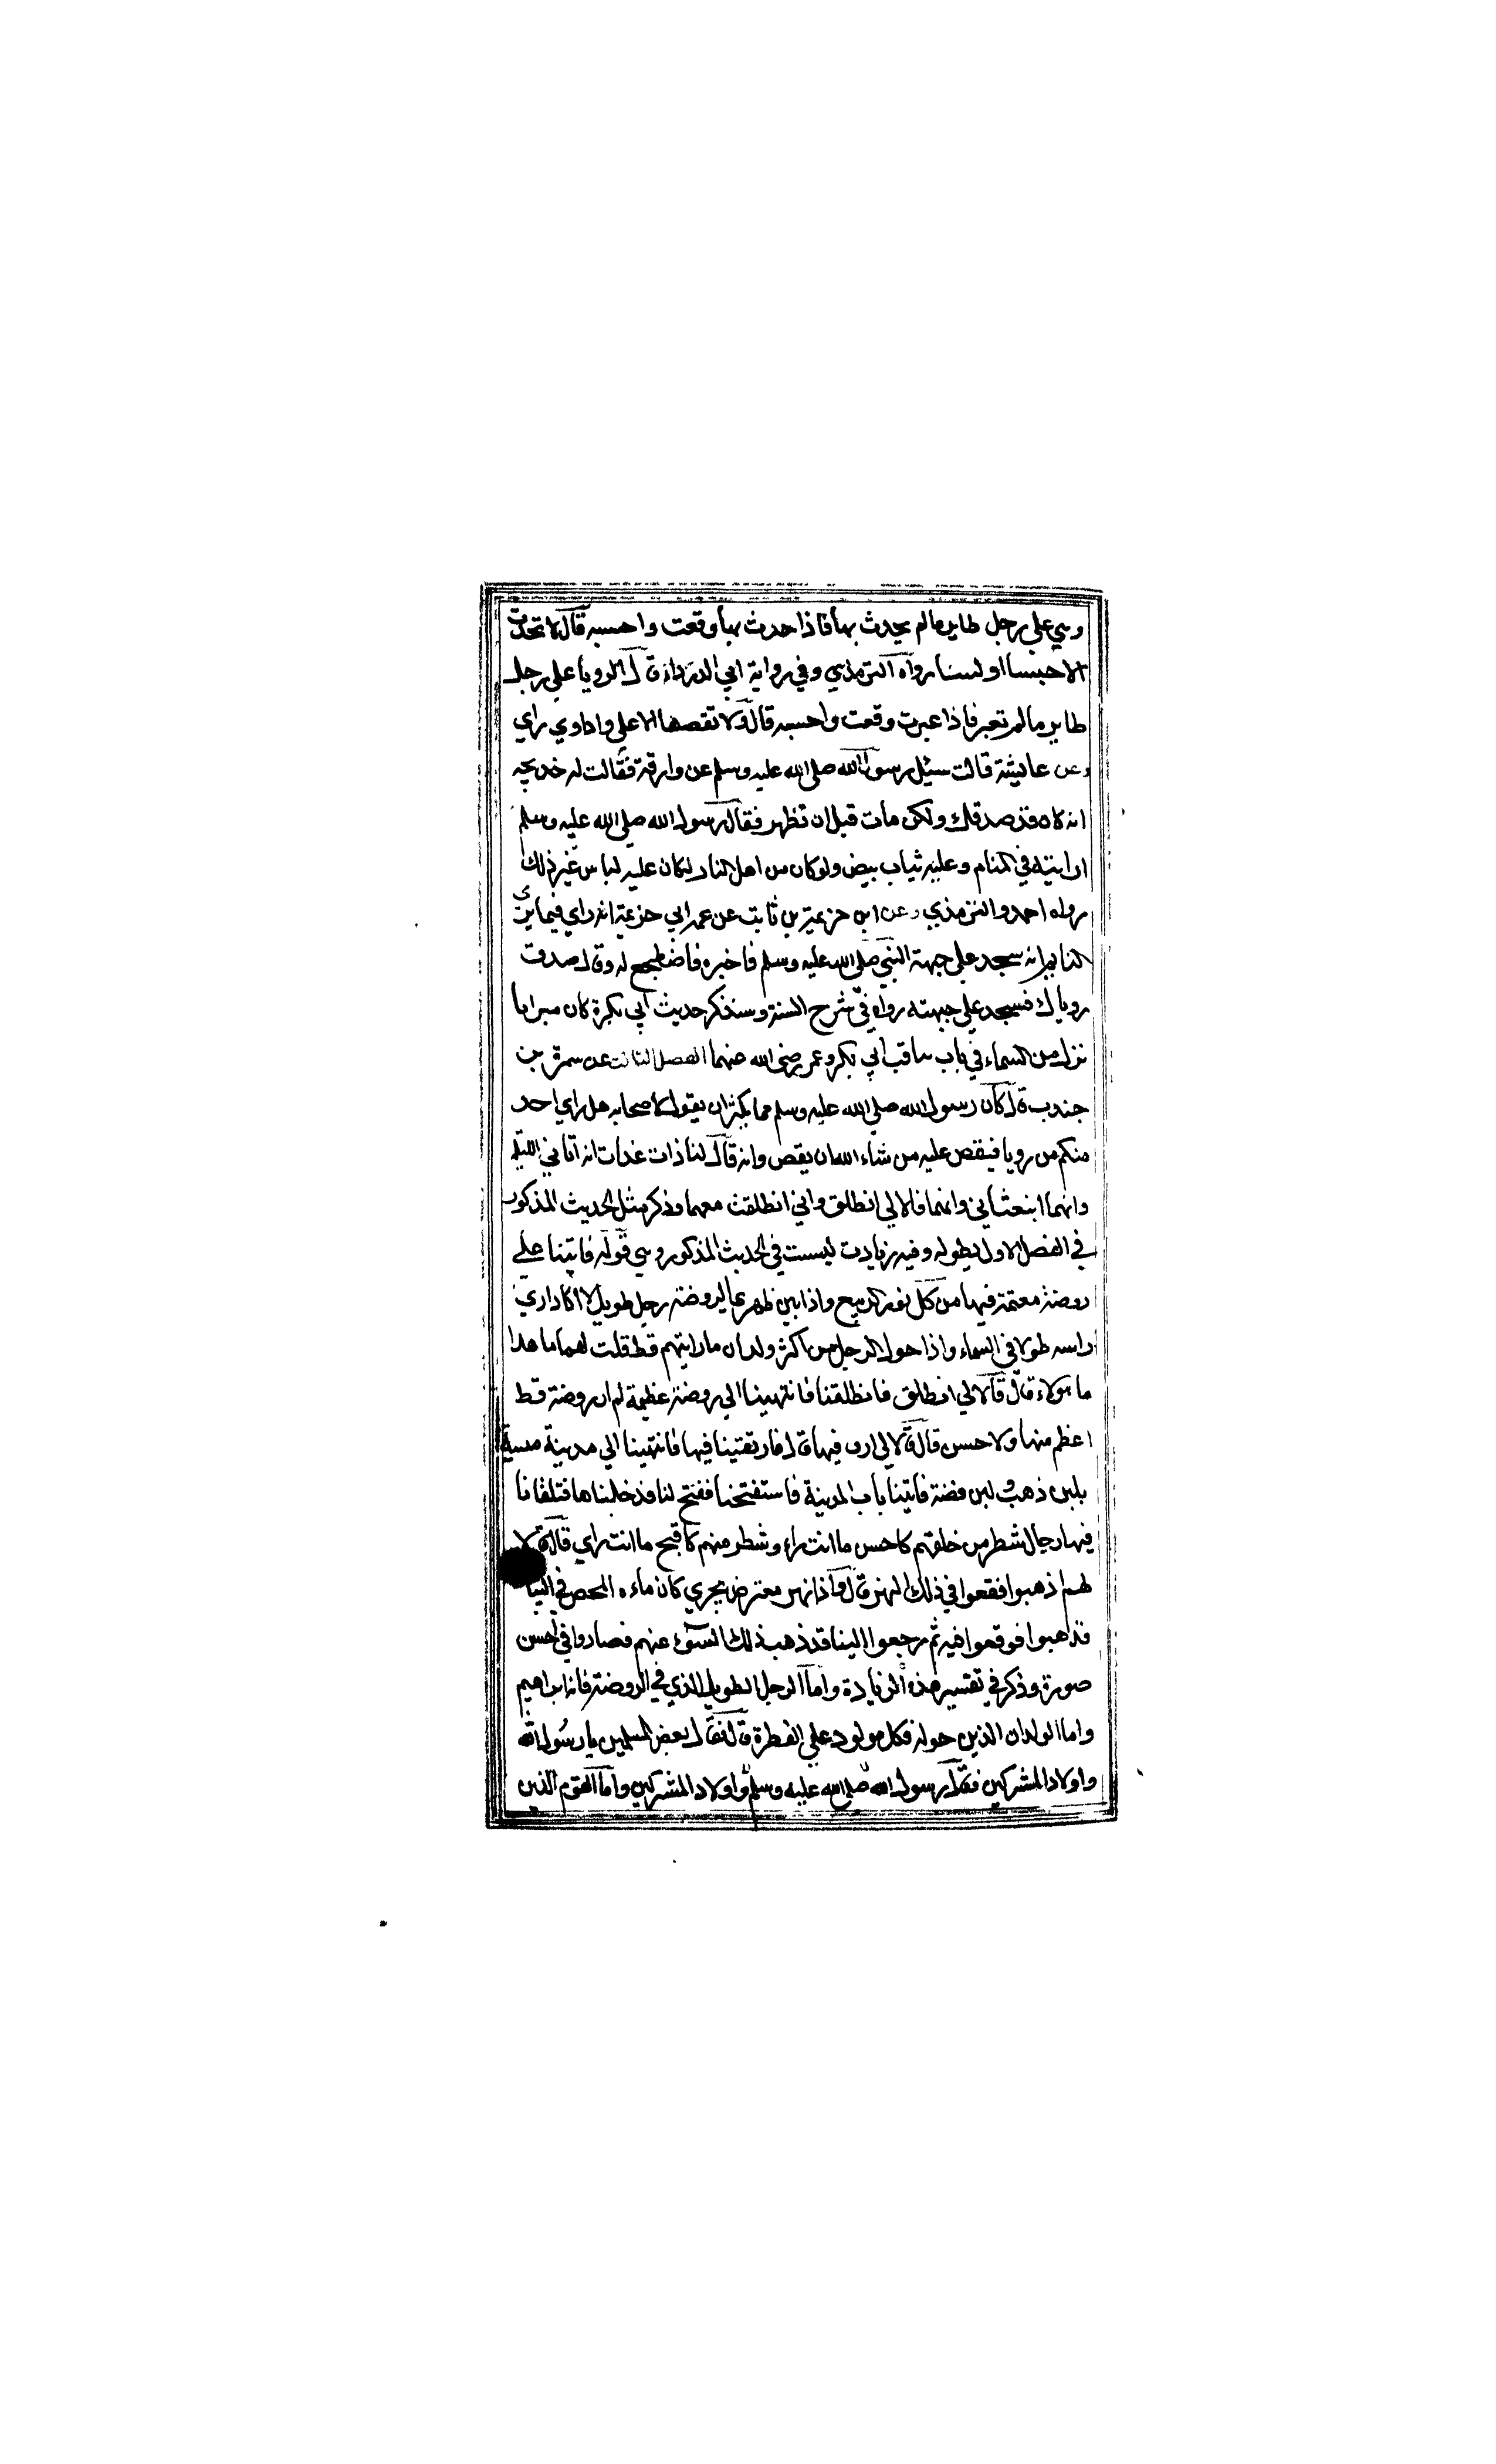 وهي على رجل طاير مالم يحدث بها فاذا حدث بها وقعت واحسبه قال لا تحدث
الا حبيبا او لبيبا رواه الترمذي وفي رواية ابي الدرداء قال الرويا على رجل
طاير مالم تعبر فاذا عبرت وقعت واحسبه قال ولا تقصها الا على واد او ذي راي
وعن عايشة قالت سئل رسول الله صلى الله عليه وسلم عن وارقة فقالت له خديجه
انه كان قد صدقك ولكن مات قبل ان تظهر فقال رسول الله صلى الله عليه وسلم
ارايته في المنام وعليه ثياب بيض ولو كان من اهل النار لكان عليه لباس غير ذلك
رواه احمد والترمذي وعن ابن خزيمة بن ثابت عن عمه ابي خزيمة انه راي فيما يرى
النايم انه سجد على جبهة النبي صلى الله عليه وسلم فاخبره فاضطجع له وقال صدق
روياك فسجد على جبهته رواه في شرح السنة وسنذكر حديث ابي بكرة كان ميزانا
نزل من السماء في باب مناقب ابي بكر وعمر رضي الله عنهما الفصل الثالث عن سمرة بن
جندب قال كان رسول الله صلى الله عليه وسلم مما يكثر ان يقول لاصحابه هل راي احد
منكم من رويا فيقص عليه من شاء الله ان يقص وانه قال لنا ذات غدات انه اتاني الليلة
وانهما ابتعثاني وانهما قالا لي انطلق واني انطلقت معهما وذكر مثل الحديث المذكور
في الفصل الاول بطوله وفيه زيادت ليست في الحديث المذكور وهي قوله فاتينا على
روضة معتمة فيها من كل نور الربيع واذا بين ظهري الروضة رجل طويل لا اكاد اري
راسه طولا في السماء واذا حول الرجل من اكثر ولدان ما رايتهم قط قلت لهما ما هذا
ما هولاء قال قالا لي انطلق فانطلقنا فانتهينا الى روضة عظيمة لم ار روضة قط
اعظم منها ولا احسن قال قالا لي ارق فيها قال فارتقينا فيها فانتهينا الى مدينة مبنية
بلبن ذهب ولبن فضة فاتينا باب المدينة فاستفتحنا ففتح لنا فدخلناها فتلقانا
فيها رجال شطر من خلقهم كاحسن ما انت راء وشطر منهم كاقبح ما انت راي قال قالا
لهم اذهبوا فقعوا في ذلك النهر قال واذا نهر معترض يجري كان ماءه المحض في البيا
فذهبوا فوقعوا فيه ثم رجعوا الينا قد ذهب ذلك السوء عنهم فصاروا في احسن
صورة وذكر في تفسير هذه الزيادة واما الرجل الطويل الذي في الروضة فانه ابراهيم
واما الولدان الذين حوله فكل مولود على الفطرة قال فقال بعض المسلمين يا رسول الله
واولاد المشركين فقال رسول الله صلى الله عليه وسلم واولاد المشركين واما القوم الذين